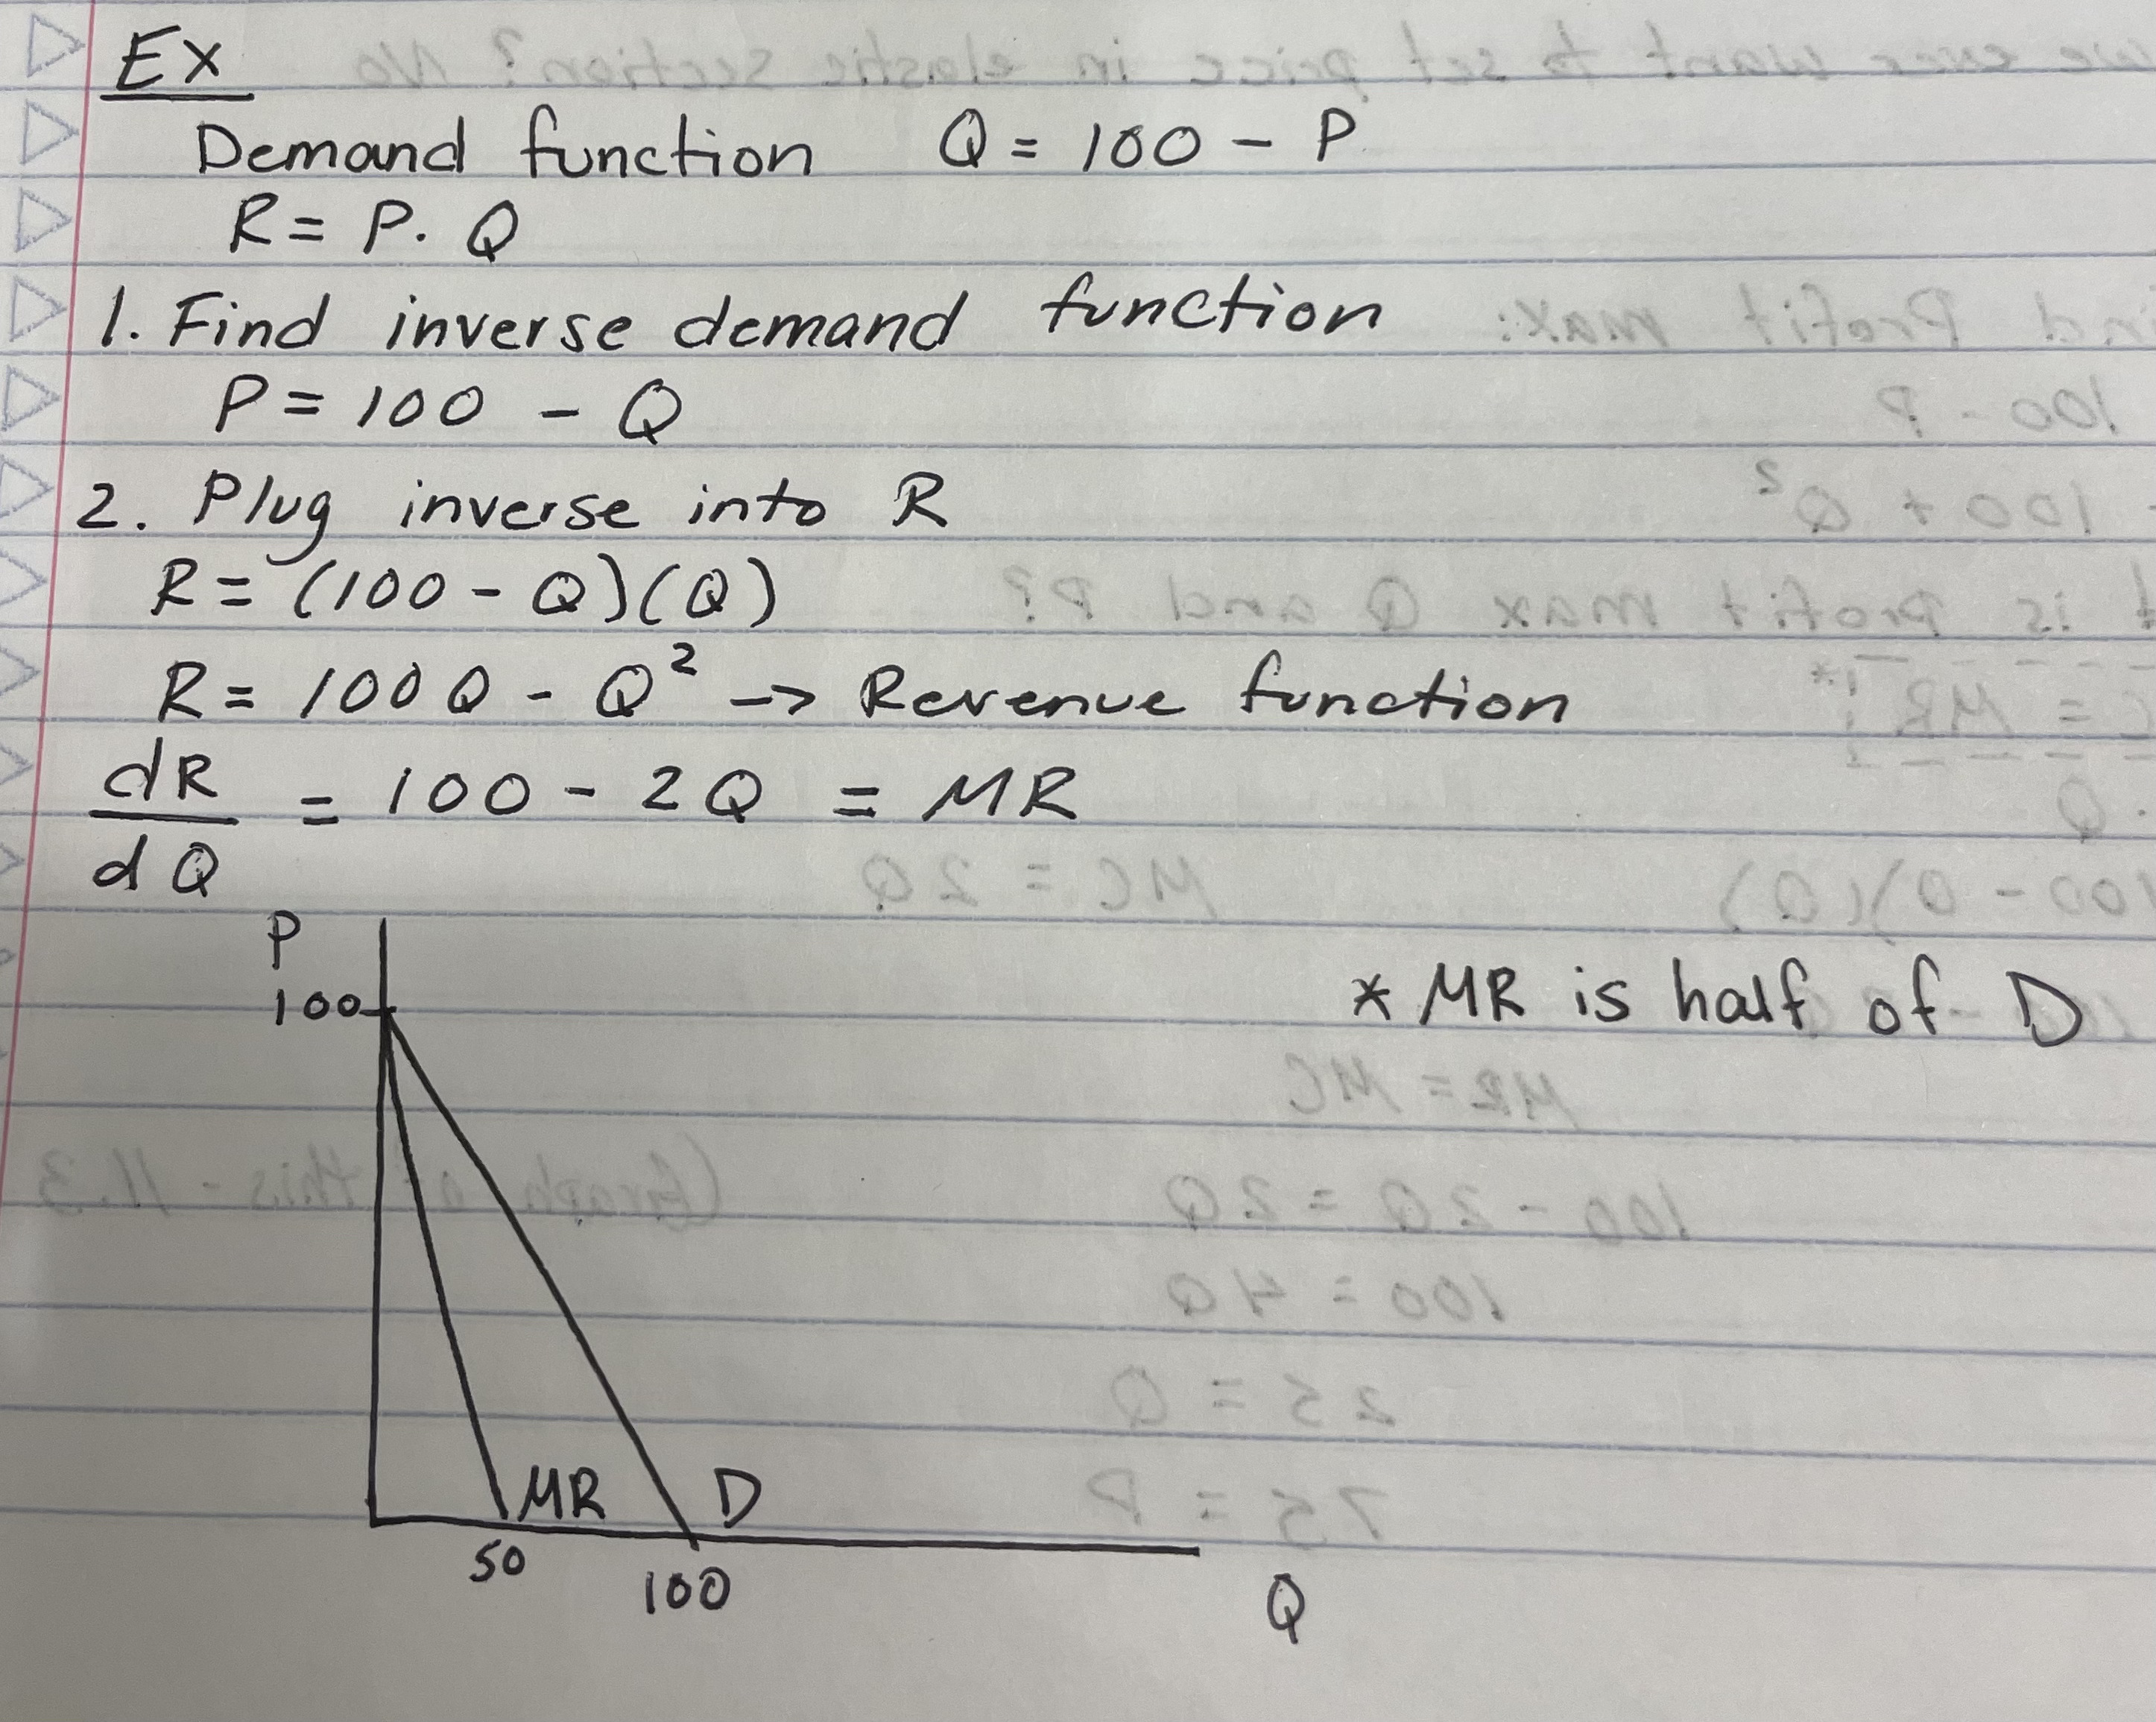 Ex
Demand function Q = 100 - P
R = P · Q
1. Find inverse demand function
P = 100 - Q
2. Plug inverse into R
R = (100 - Q)(Q)
R = 100Q - Q² -> Revenue function
dR
= 100 - 2Q = MR
dQ
P
100
* MR is half of D
MR D
50
100
Q